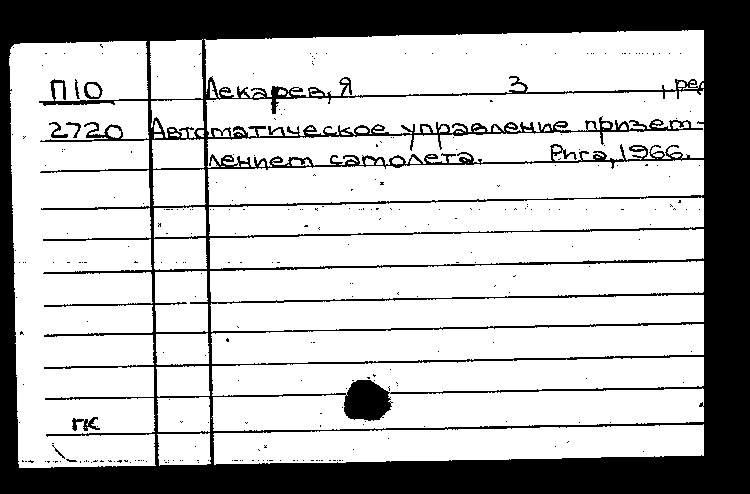 П10 Лекарев, Я З , ред
2720 Автоматическое управление призем-
лением самолета. Рига, 1966.
ГК